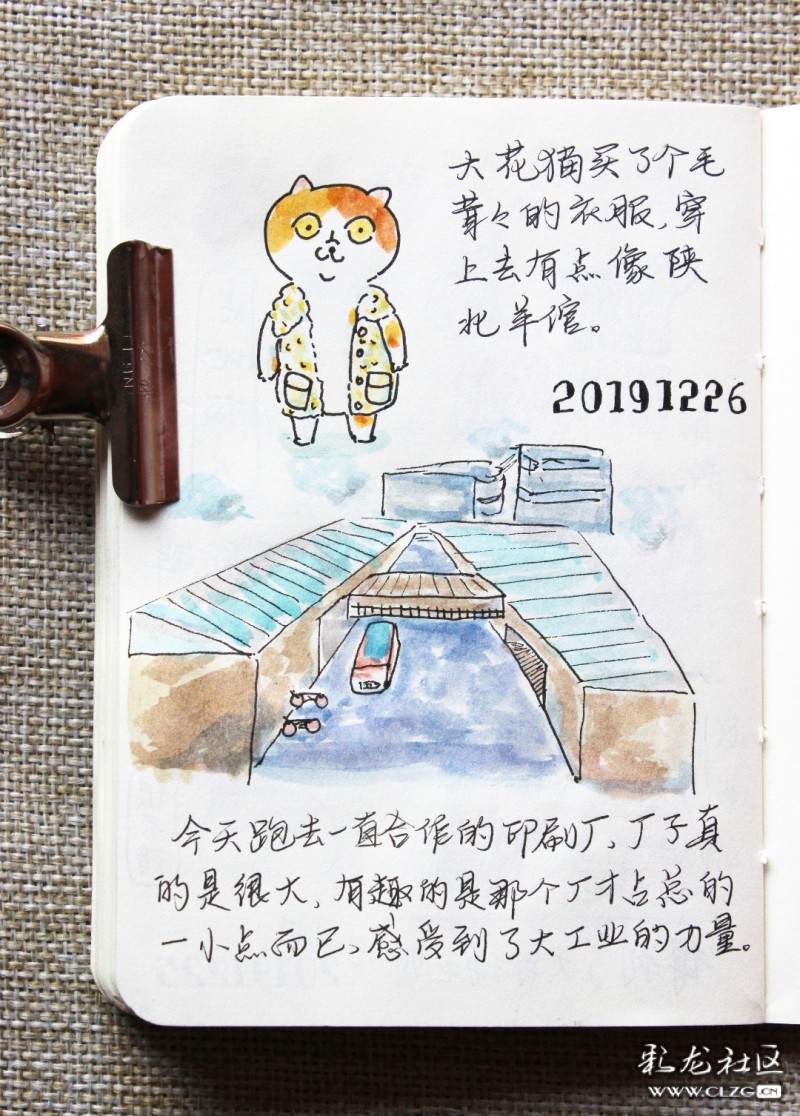 大花猫买了个毛
茸々的衣服,穿
上去有点像陕
北羊倌。
20191226
今天跑去一直合作的印刷厂,厂子真
的是很大,有趣的是那个厂才占总的
一小点而已,感受到了大工业的力量。
彩龙社区
WWW.CLZG.CN